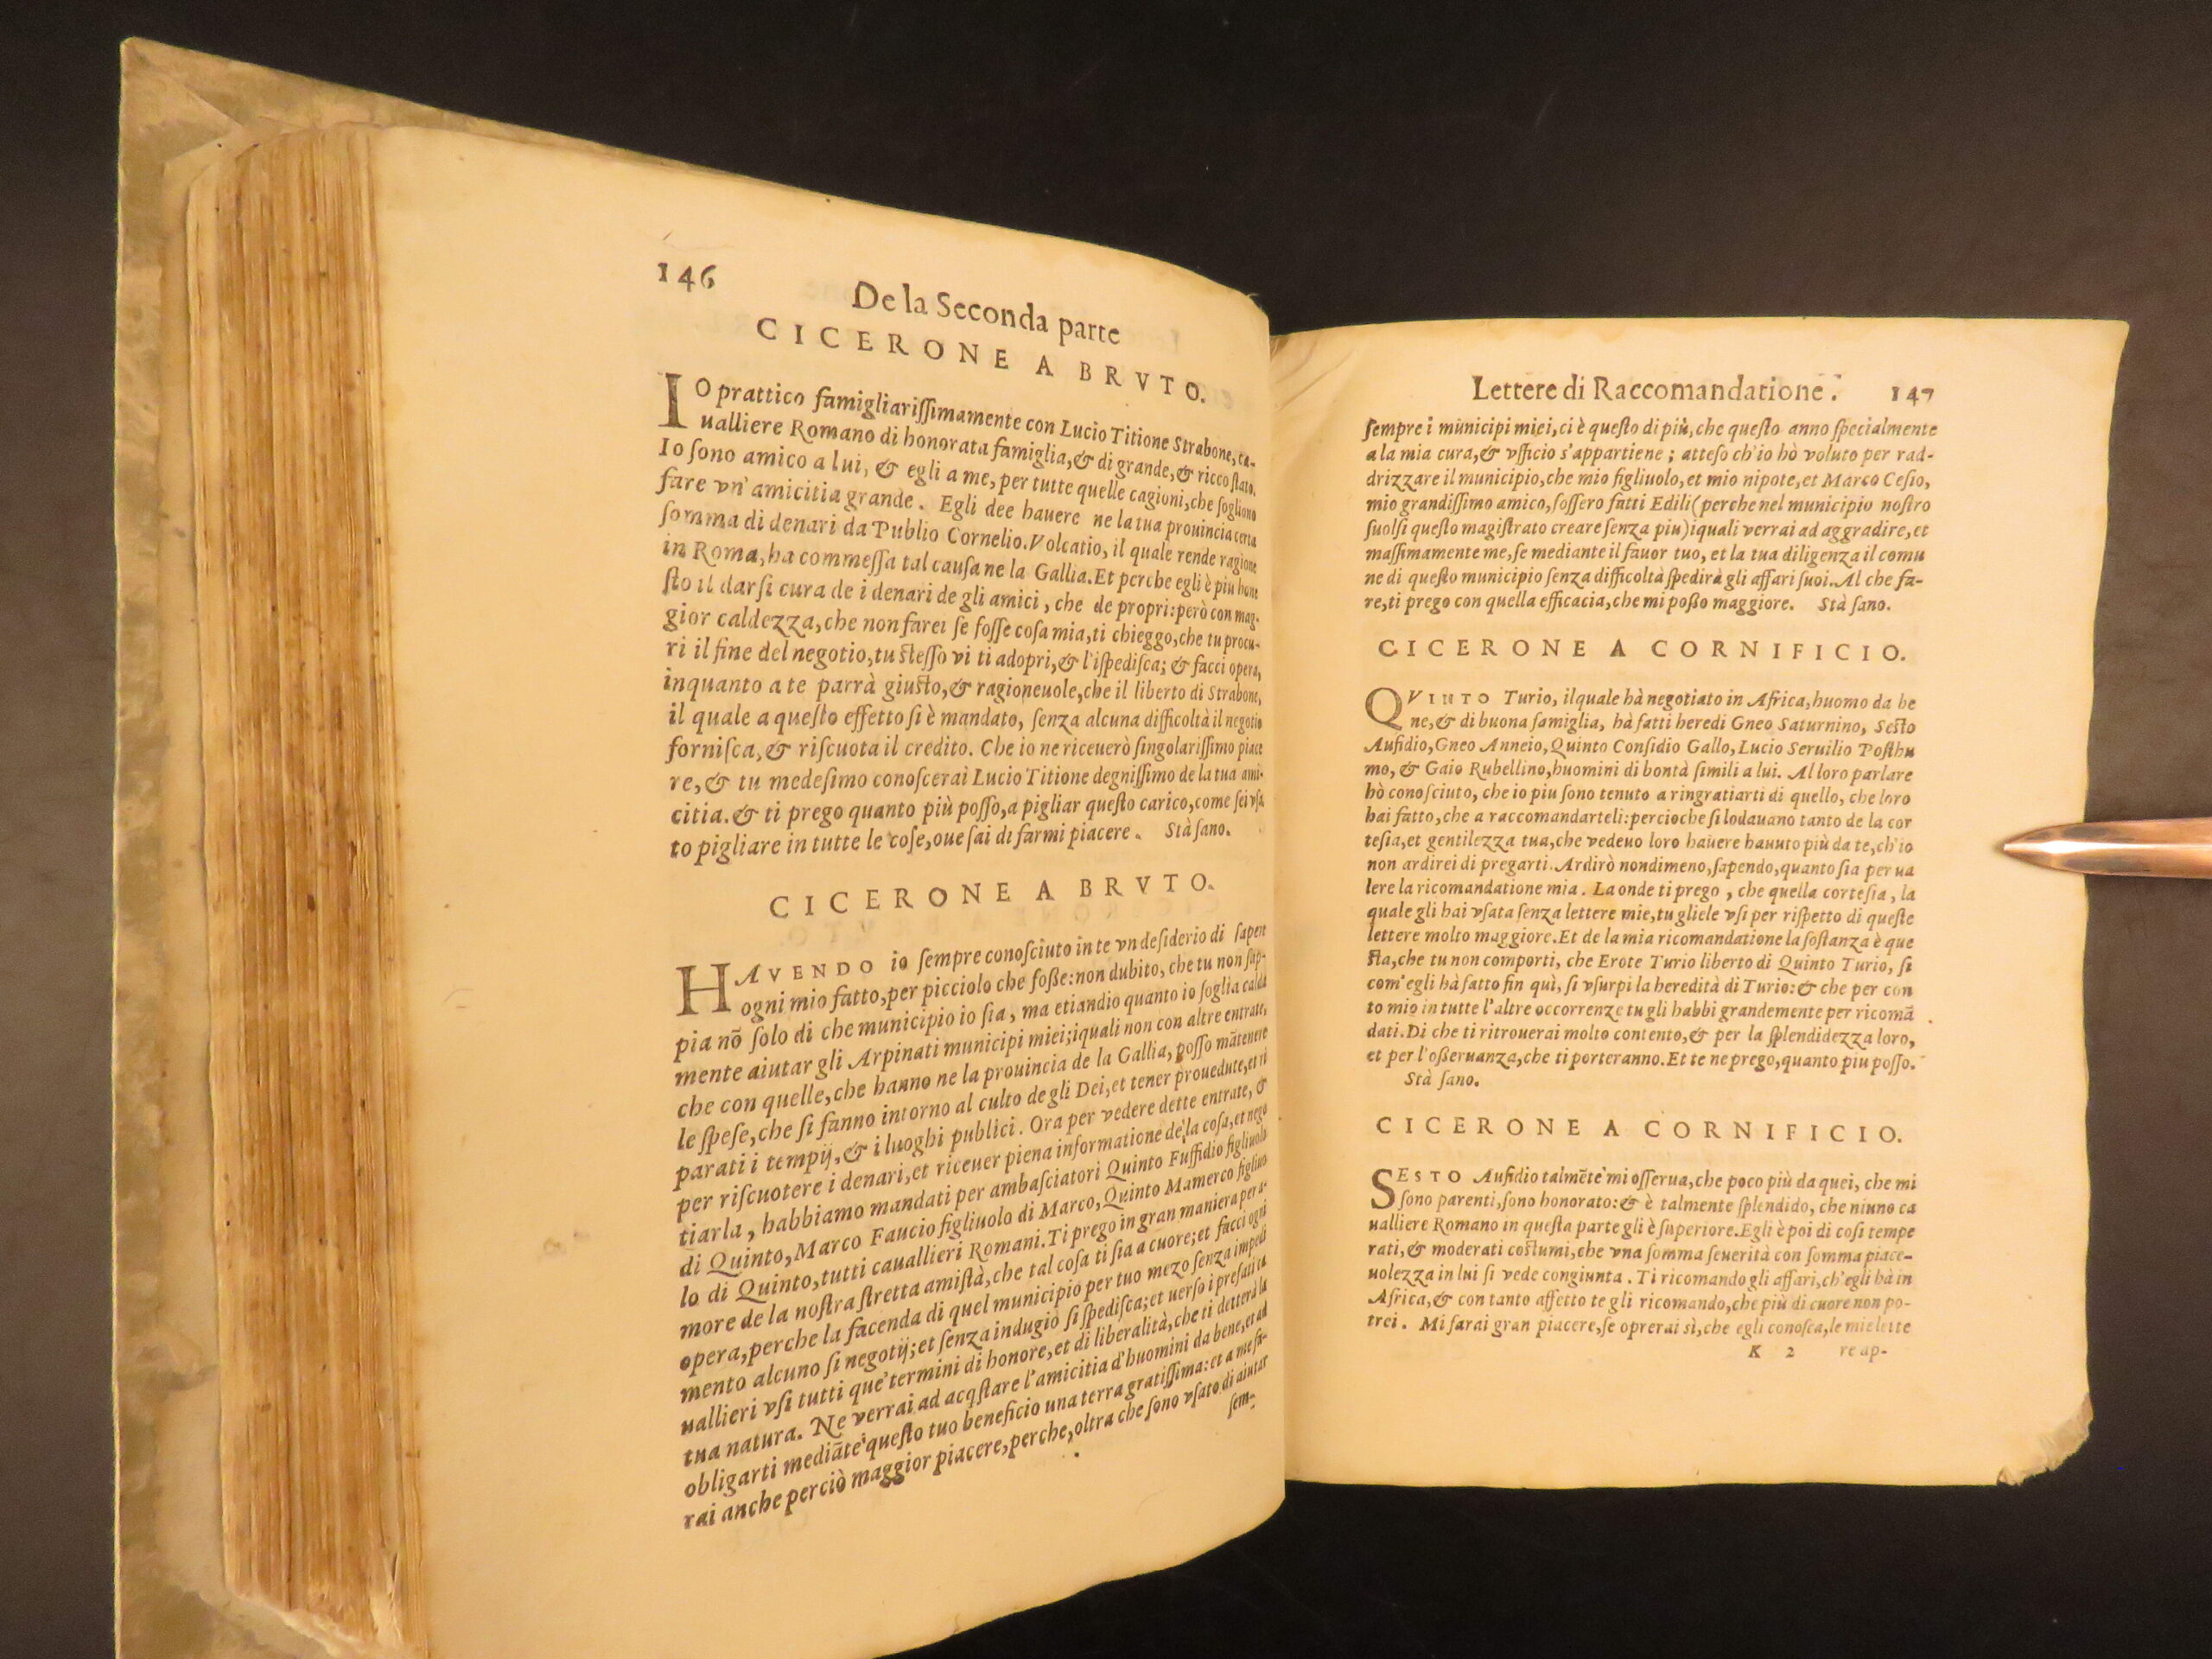 146
De la Seconda parte
CICERONE A BRVTO.
IO prattico famigliariſſimamente con Lucio Titione Strabone, ca-
ualliere Romano di honorata famiglia, & di grande, & ricco ſtato.
Io ſono amico a lui, & egli a me, per tutte quelle cagioni, che ſogliono
fare vn' amicitia grande. Egli dee hauere ne la tua prouincia certa
ſomma di denari da Publio Cornelio. Volcatio, il quale rende ragione
in Roma, ha commeſſa tal cauſa ne la Gallia. Et perche egli è più hone
ſto il darſi cura de i denari de gli amici, che de propri: però con mag-
gior caldezza, che non farei ſe foſſe coſa mia, ti chieggo, che tu procu-
ri il fine del negotio, tu ſteſſo vi ti adopri, & l'iſpediſca; & facci opera,
inquanto a te parrà giuſto, & ragioneuole, che il liberto di Strabone,
il quale a queſto effetto ſi è mandato, ſenza alcuna difficoltà il negotio
forniſca, & riſcuota il credito. Che io ne riceuerò ſingolariſſimo piace
re, & tu medeſimo conoſcerai Lucio Titione degniſſimo de la tua ami-
citia. & ti prego quanto più poſſo, a pigliar queſto carico, come ſei vſa
to pigliare in tutte le coſe, oue ſai di farmi piacere. Stà ſano.
CICERONE A BRVTO.
HAVENDO io ſempre conoſciuto in te vn deſiderio di ſapere
ogni mio fatto, per picciolo che foße: non dubito, che tu non ſap-
pia nō ſolo di che municipio io ſia, ma etiandio quanto io ſoglia calda
mente aiutar gli Arpinati municipi miei; iquali non con altre entrate,
che con quelle, che hanno ne la prouincia de la Gallia, poſſo mātenere
le ſpeſe, che ſi fanno intorno al culto de gli Dei, et tener prouedute, et ri
parati i tempij, & i luoghi publici. Ora per vedere dette entrate, &
per riſcuotere i denari, et riceuer piena informatione de la coſa, et nego
tiarla, habbiamo mandati per ambaſciatori Quinto Fuffidio figliuolo
di Quinto, Marco Faucio figliuolo di Marco, Quinto Mamerco figliuo
lo di Quinto, tutti cauallieri Romani. Ti prego in gran maniera per a-
more de la noſtra ſtretta amiſtà, che tal coſa ti ſia a cuore; et facci ogni
opera, perche la facenda di quel municipio per tuo mezo ſenza impedi
mento alcuno ſi negotij; et ſenza indugio ſi ſpediſca; et uerſo i prefati ca
uallieri vſi tutti que' termini di honore, et di liberalità, che ti detterà la
tua natura. Ne verrai ad acqſtare l'amicitia d'huomini da bene, et ad
obligarti mediāte queſto tuo beneficio una terra gratiſſima: et a me fa-
rai anche perciò maggior piacere, perche, oltra che ſono vſato di aiutar
ſem-
Lettere di Raccomandatione. 147
ſempre i municipi miei, ci è queſto di più, che queſto anno ſpecialmente
a la mia cura, & vfficio s'appartiene; atteſo ch'io hò voluto per rad-
drizzare il municipio, che mio figliuolo, et mio nipote, et Marco Ceſio,
mio grandiſſimo amico, foſſero fatti Edili (perche nel municipio noſtro
ſuolſi queſto magiſtrato creare ſenza piu) iquali verrai ad aggradire, et
maſſimamente me, ſe mediante il fauor tuo, et la tua diligenza il comu
ne di queſto municipio ſenza difficoltà ſpedirà gli affari ſuoi. Al che fa-
re, ti prego con quella efficacia, che mi poßo maggiore. Stà ſano.
CICERONE A CORNIFICIO.
QVINTO Turio, ilquale hà negotiato in Africa, huomo da be
ne, & di buona famiglia, hà fatti heredi Gneo Saturnino, Seſto
Aufidio, Gneo Anneio, Quinto Conſidio Gallo, Lucio Seruilio Poſthu
mo, & Gaio Rubellino, huomini di bontà ſimili a lui. Al loro parlare
hò conoſciuto, che io piu ſono tenuto a ringratiarti di quello, che loro
hai fatto, che a raccomandarteli: percioche ſi lodauano tanto de la cor
teſia, et gentilezza tua, che vedeuo loro hauere hauuto più da te, ch'io
non ardirei di pregarti. Ardirò nondimeno, ſapendo, quanto ſia per ua
lere la ricomandatione mia. La onde ti prego, che quella corteſia, la
quale gli hai vſata ſenza lettere mie, tu gliele vſi per riſpetto di queſte
lettere molto maggiore. Et de la mia ricomandatione la ſoſtanza è que
ſta, che tu non comporti, che Erote Turio liberto di Quinto Turio, ſi
com'egli hà fatto fin quì, ſi vſurpi la heredità di Turio: & che per con
to mio in tutte l'altre occorrenze tu gli habbi grandemente per ricomā
dati. Di che ti ritrouerai molto contento, & per la ſplendidezza loro,
et per l'oßeruanza, che ti porteranno. Et te ne prego, quanto piu poſſo.
Stà ſano.
CICERONE A CORNIFICIO.
SESTO Aufidio talmēte mi oſſerua, che poco più da quei, che mi
ſono parenti, ſono honorato: & è talmente ſplendido, che niuno ca
ualliere Romano in queſta parte gli è ſuperiore. Egli è poi di coſi tempe
rati, & moderati coſtumi, che vna ſomma ſeuerità con ſomma piace-
uolezza in lui ſi vede congiunta. Ti ricomando gli affari, ch'egli hà in
Africa, & con tanto affetto te gli ricomando, che più di cuore non po-
trei. Mi farai gran piacere, ſe oprerai sì, che egli conoſca, le mie lette
K 2 re ap-